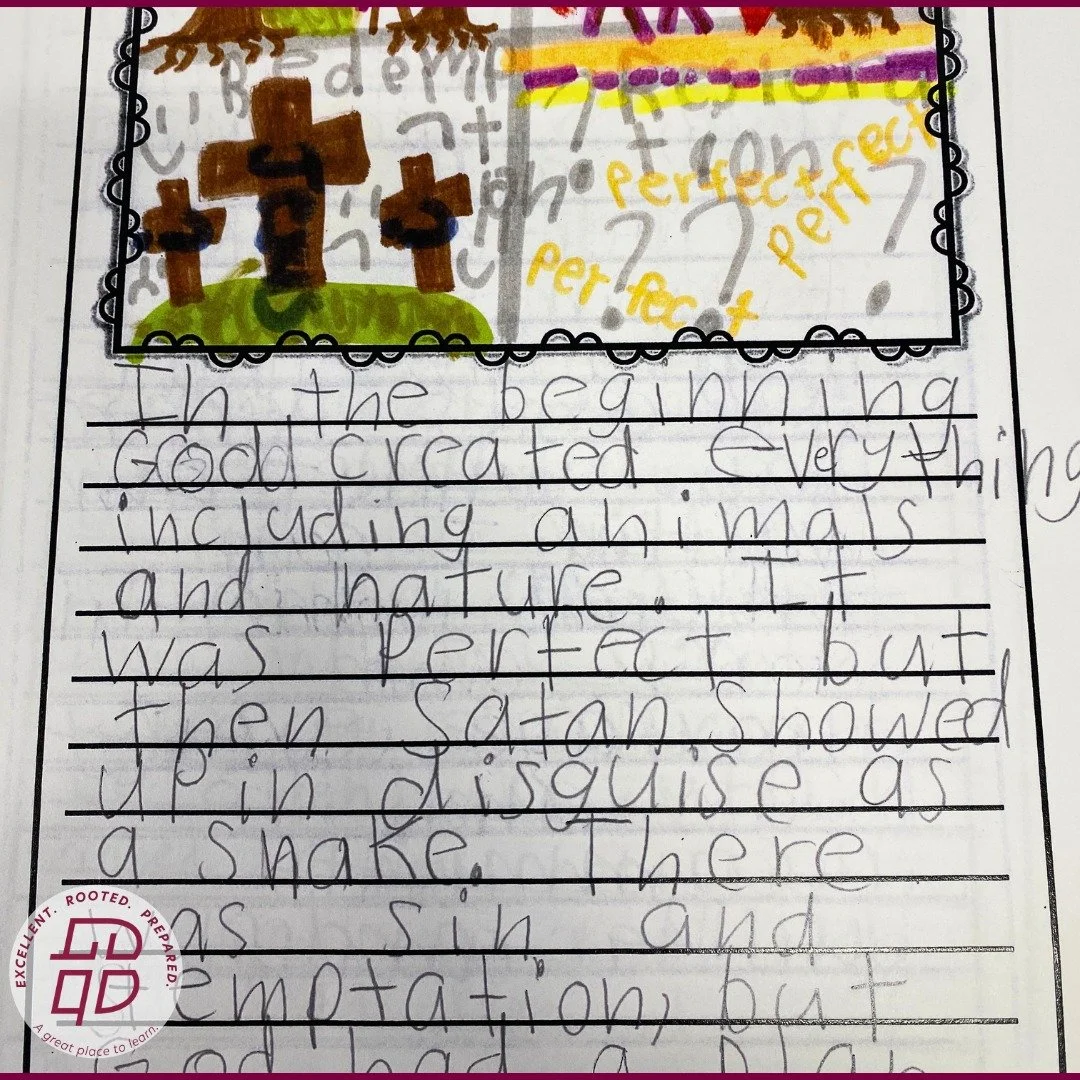 Redemp
tion!
Restora
tion
perfect
perfect
perfect
? ? ?
In the beginning
God created everything
including animals
and nature. It
was perfect but
then Satan showed
up in disguise as
a snake. There
was sin and
temptation, but
God had a plan
EXCELLENT. ROOTED. PREPARED.
A great place to learn.